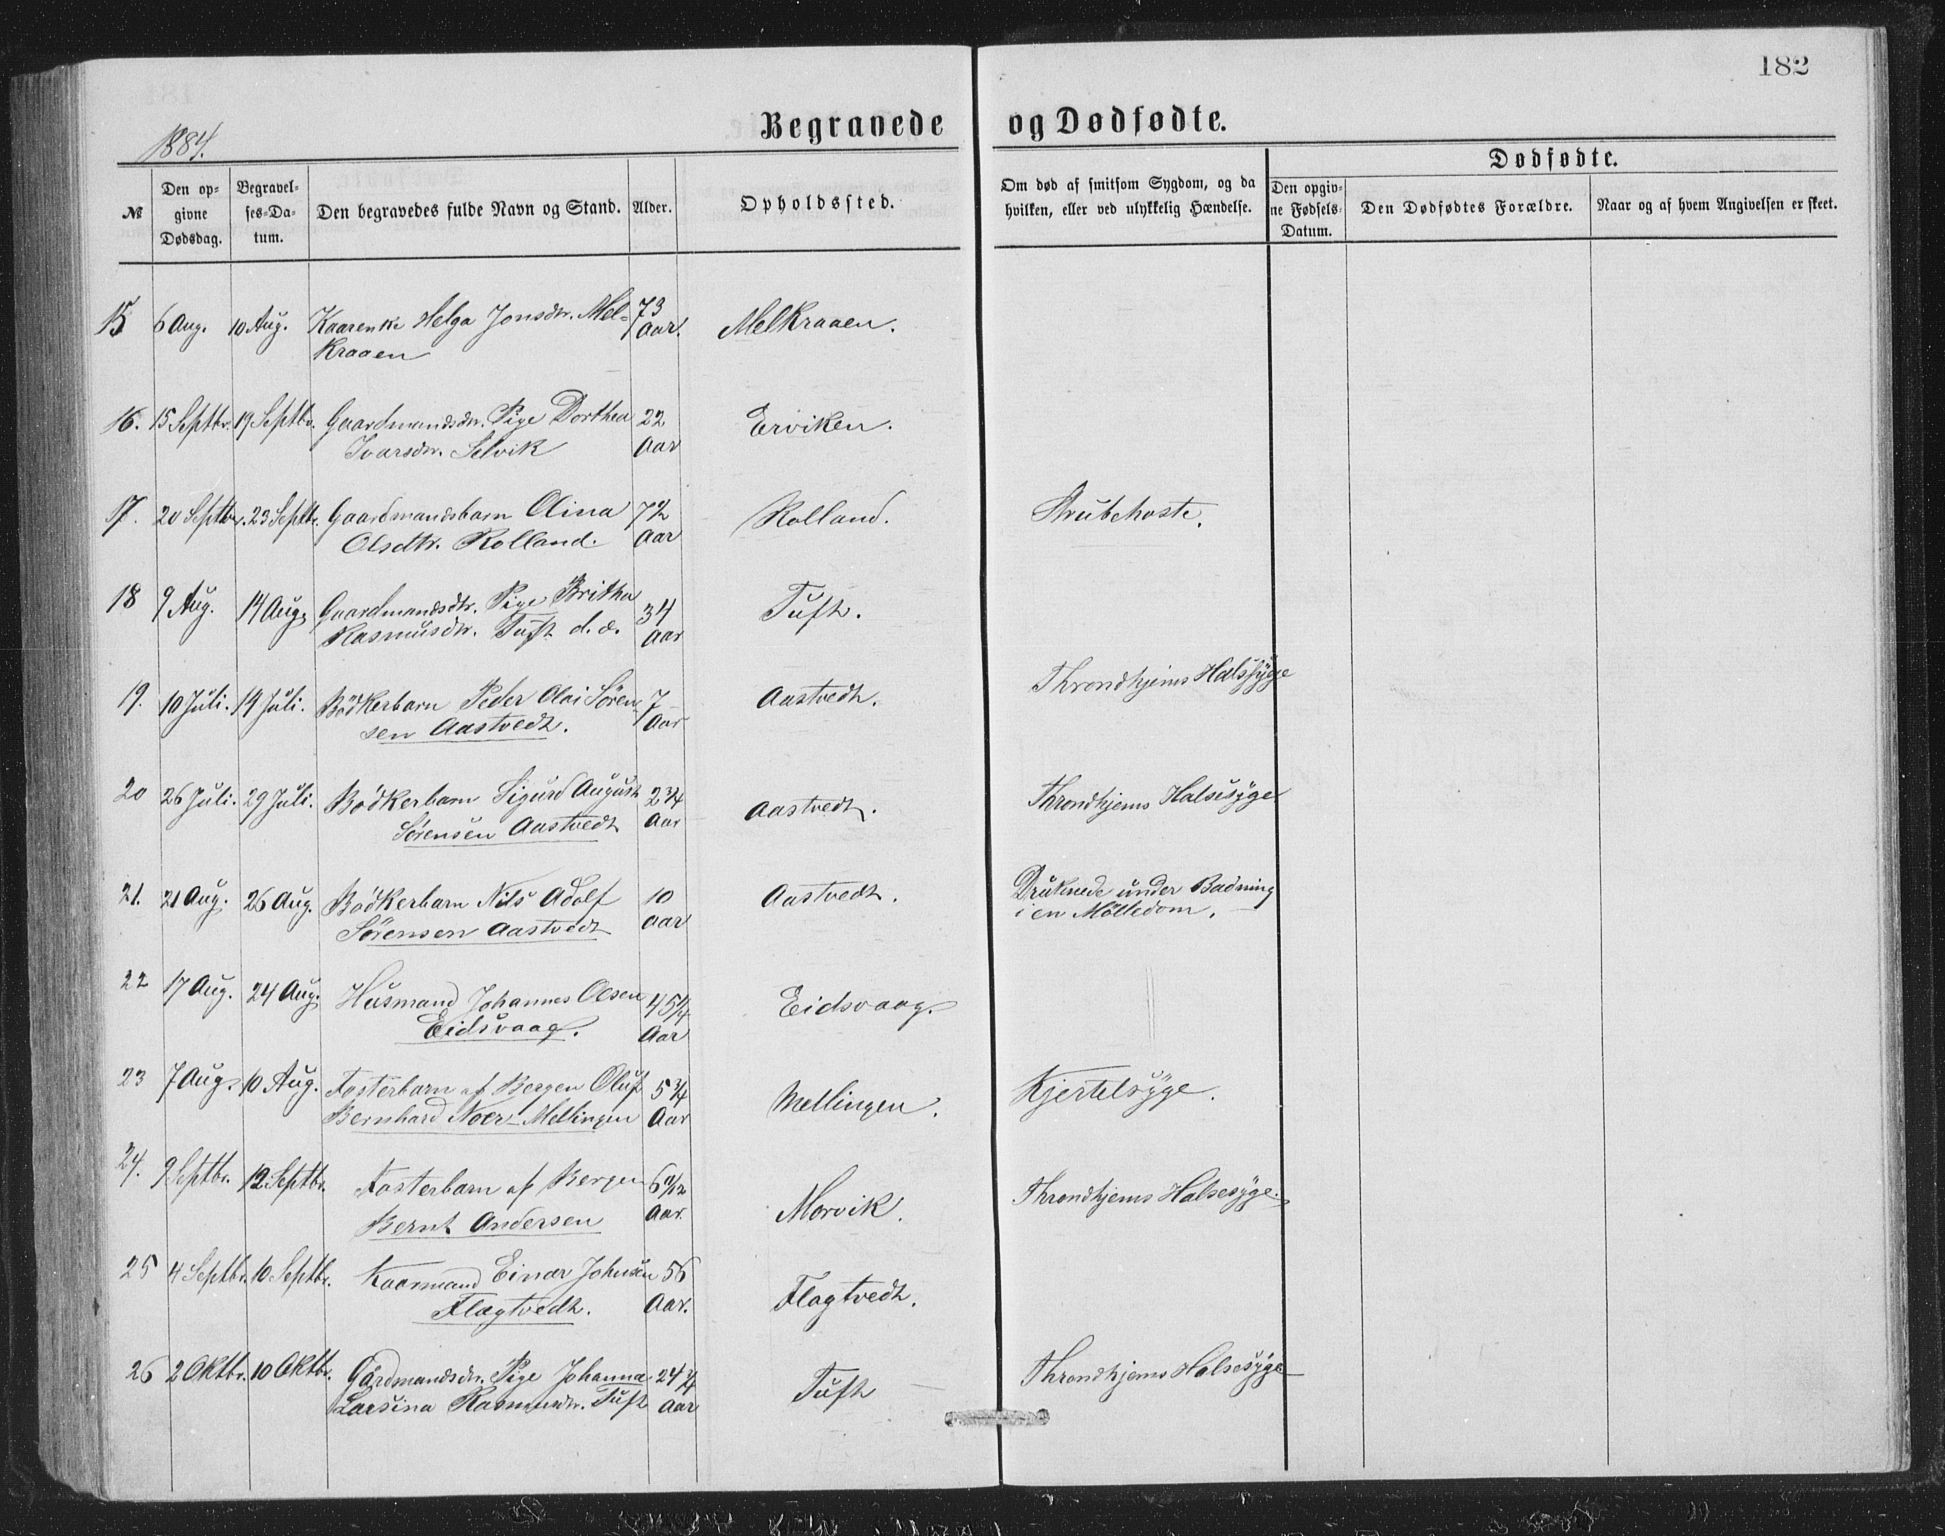 182
1884.
Begravede og Dødfødte.
№
Den opgivne Dødsdag.
Begravelses-Datum.
Den begravedes fulde Navn og Stand.
Alder.
Opholdssted.
Om død af smitsom Sygdom, og da hvilken, eller ved ulykkelig Hændelse.
Dødfødte.
Den opgivne Fødsels-Datum.
Den Dødfødtes Forældre.
Naar og af hvem Angivelsen er skeet.
15 6 Aug. 10 Aug. Kaarenke Helga Jonsdtr. Mel- 73 Melkraaen.
kraaen Aar.
16. 15 Septbr. 19 Septbr. Gaardmandsdtr. Pige Dorthea 22 Erviken.
Ivarsdtr. Selvik Aar
17. 20 Septbr. 23 Septbr. Gaardmandsbarn Olina 7½ Rolland. Strubehoste.
Olsdtr. Rolland. Aar
18 9 Aug. 14 Aug. Gaardmandsdtr. Pige Britha 34 Tuft.
Rasmusdtr. Tuft d. æ. Aar
19. 10 Juli. 14 Juli. Bödkerbarn Peder Olai Sören- 7 Aastvedt. Throndhjems Halssyge
sen Aastvedt. Aar
20 26 Juli. 29 Juli. Bödkerbarn Sigurd August 2¾ Aastvedt. Throndhjems Halsesyge
Sörensen Aastvedt Aar
21. 21 Aug. 26 Aug. Bödkerbarn Nils Adolf 10 Aastvedt. Druknede under Badning
Sörensen Aastvedt Aar i en Mölledam.
22 17 Aug. 24 Aug. Husmand Johannes Olsen 45¼ Eidsvaag.
Eidsvaag. Aar
23 7 Aug. 10 Aug. Fosterbarn af Bergen Oluf 5¾ Mellingen. Kjertelsyge.
Bernhard Noer - Mellingen Aar
24. 9 Septbr. 12 Septbr. Fosterbarn af Bergen 6 Morvik. Throndhjems Halsesyge.
Bernt Andersen Aar.
25 4 Septbr. 10 Septbr. Kaarmand Einar Johnsen 56 Flagtvedt.
Flagtvedt. Aar.
26 2 Oktbr. 10 Oktbr. Gårdmandsdtr. Pige Johanna 24¾ Tuft Throndhjems Halsesyge
Larsina Rasmusdtr. Tuft Aar